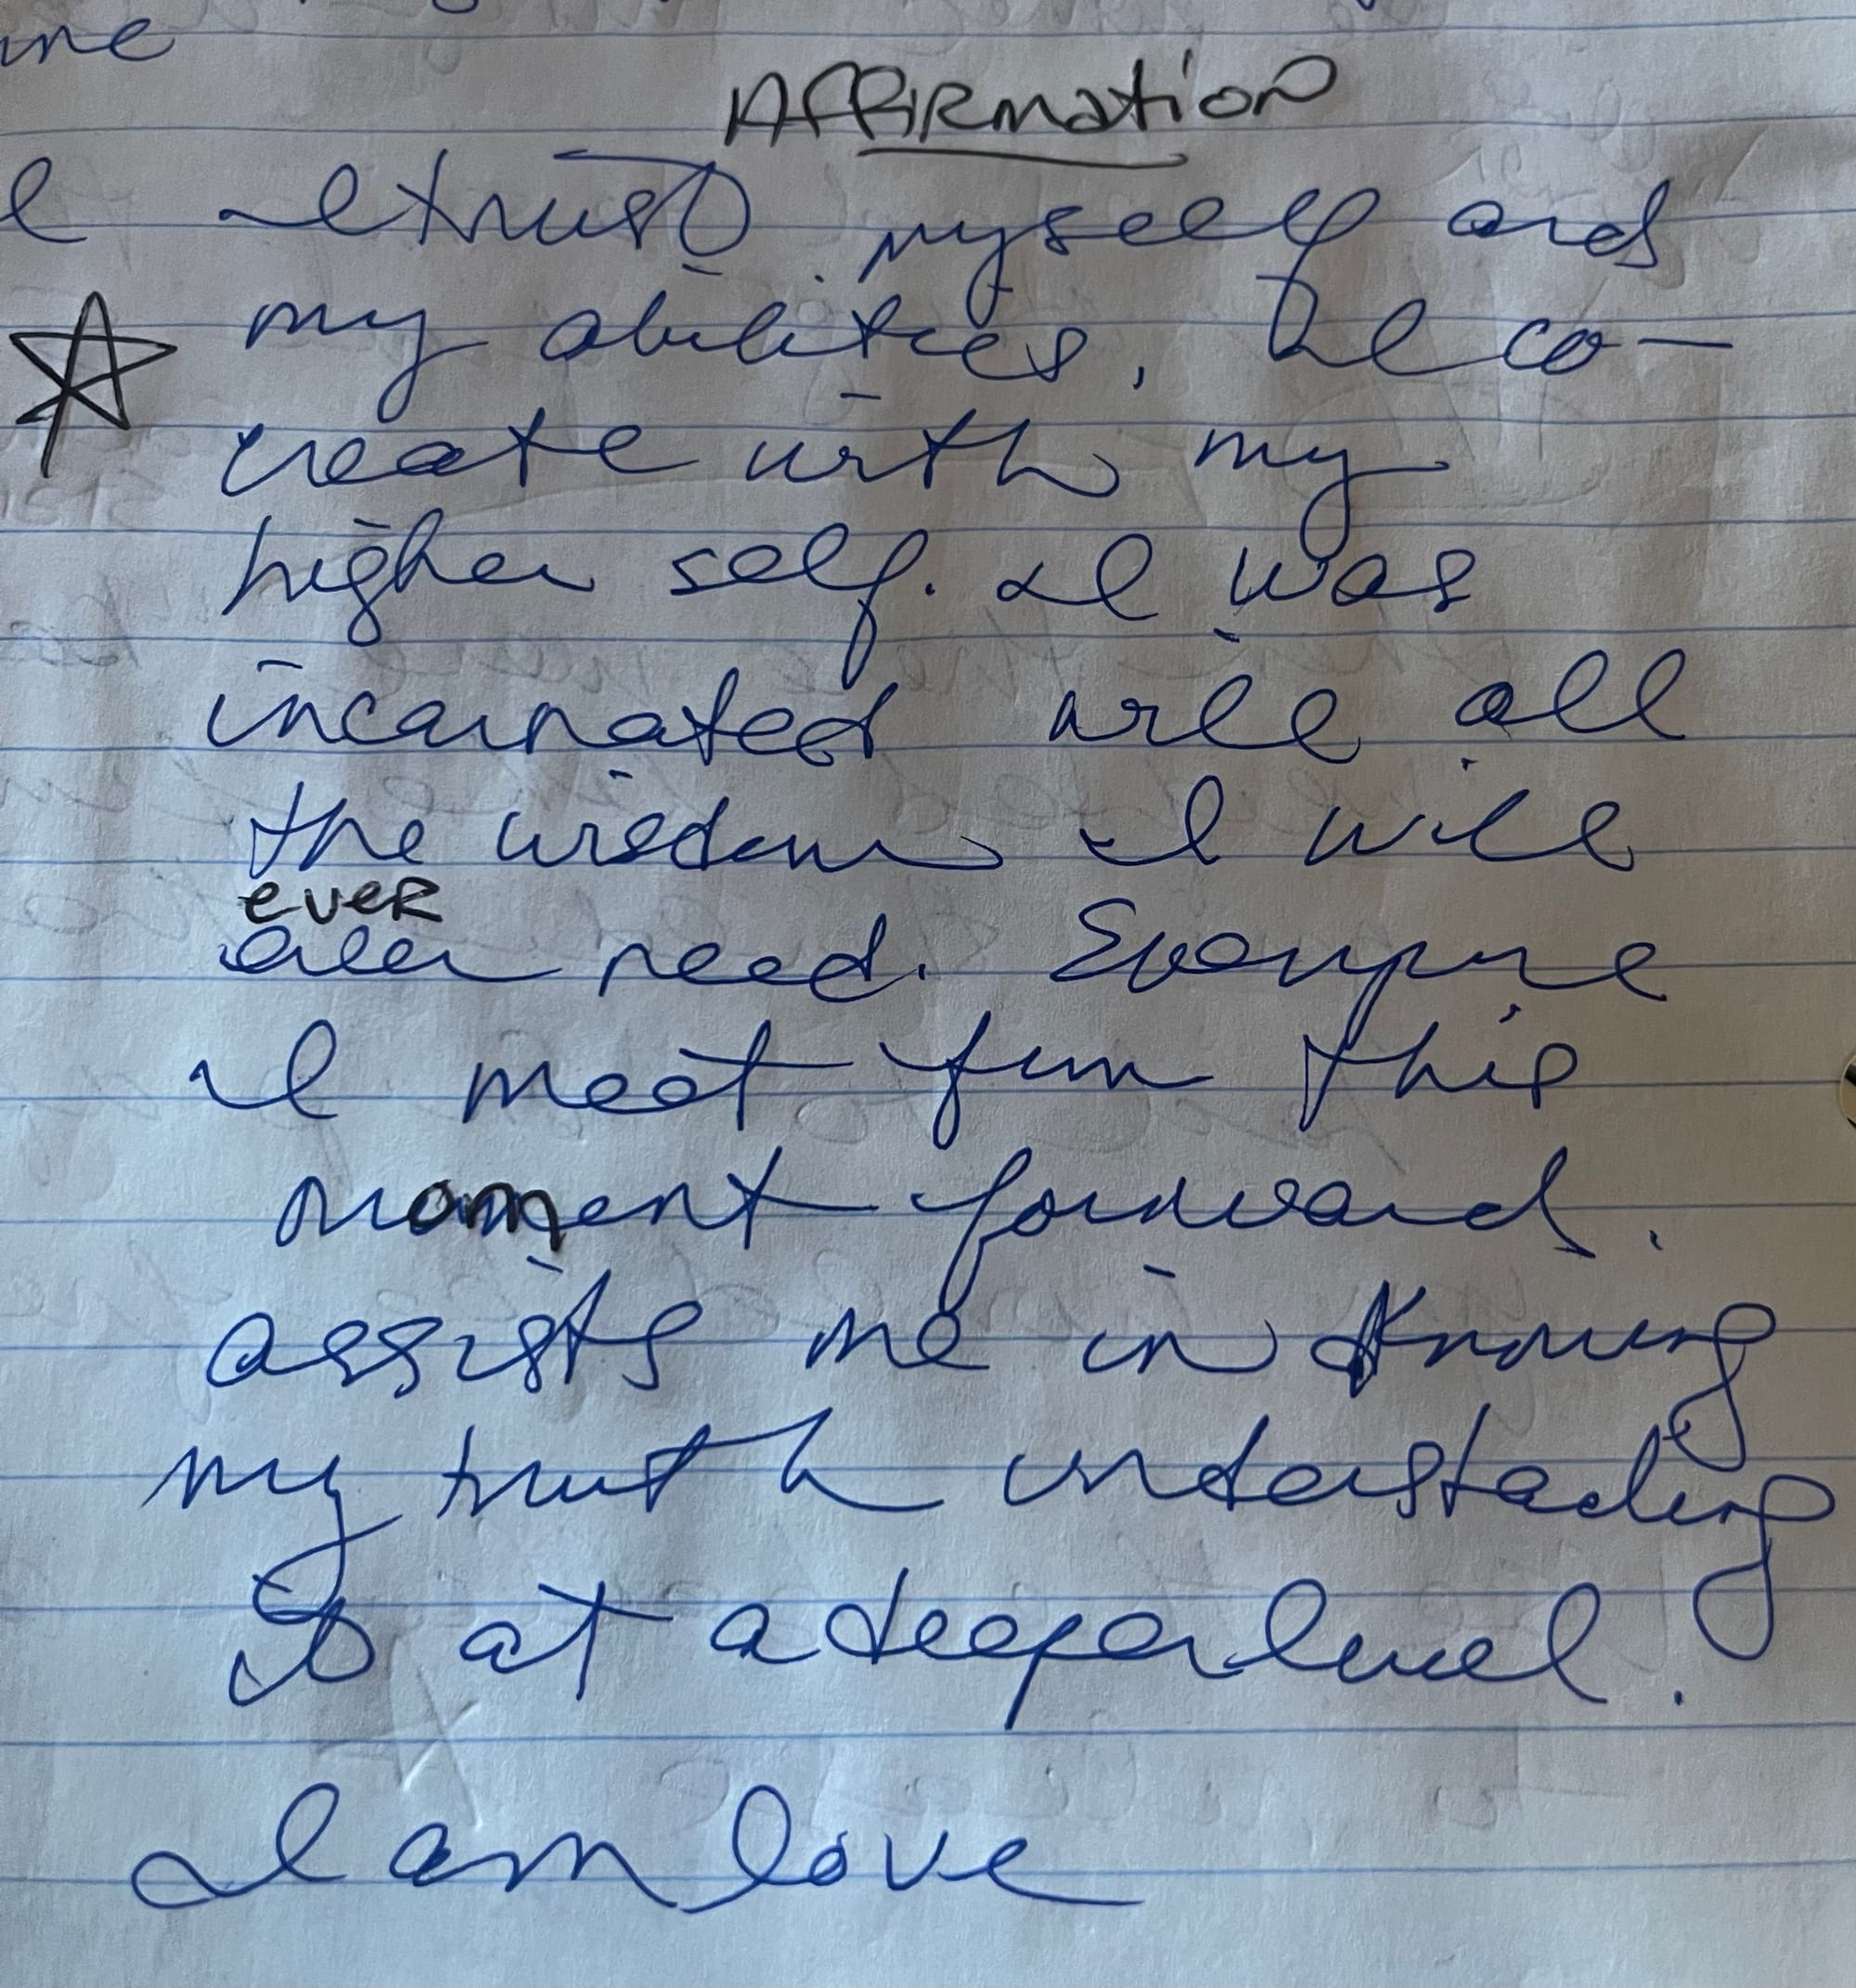 ine
Affirmation
I trust myself and
my abilities. I co-
create with my
higher self. I was
incarnated will all
the wisdom I will
ever
ever need. Everyone
I meet from this
moment forward.
assists me in knowing
my truth understading
It at a deeper level.
I am love